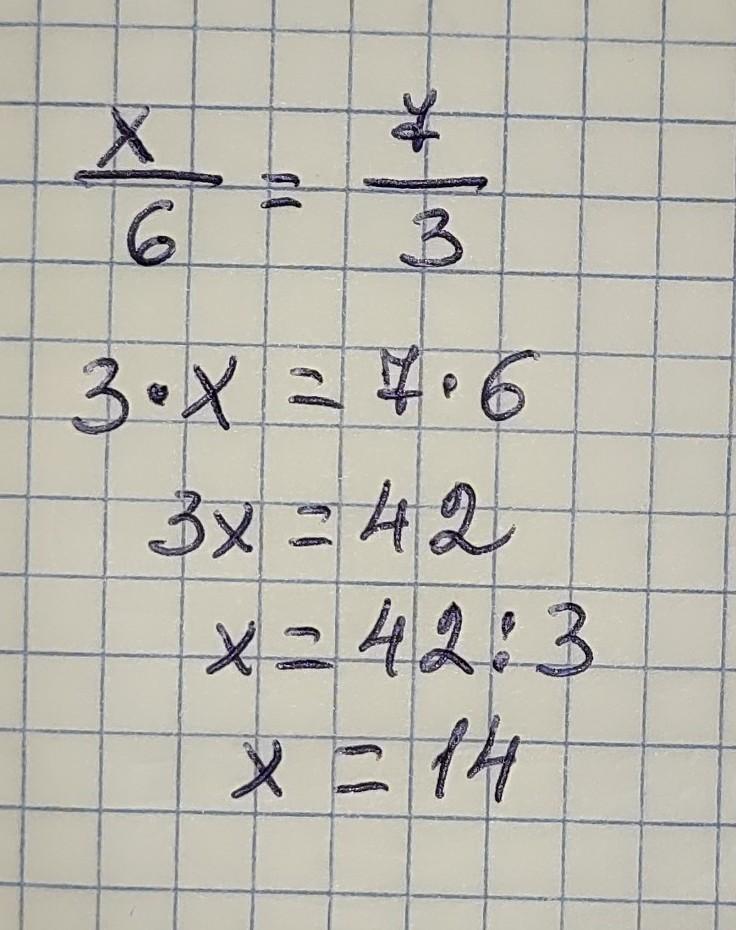 x/6 = 7/3
3·x = 7·6
3x = 42
x = 42:3
x = 14